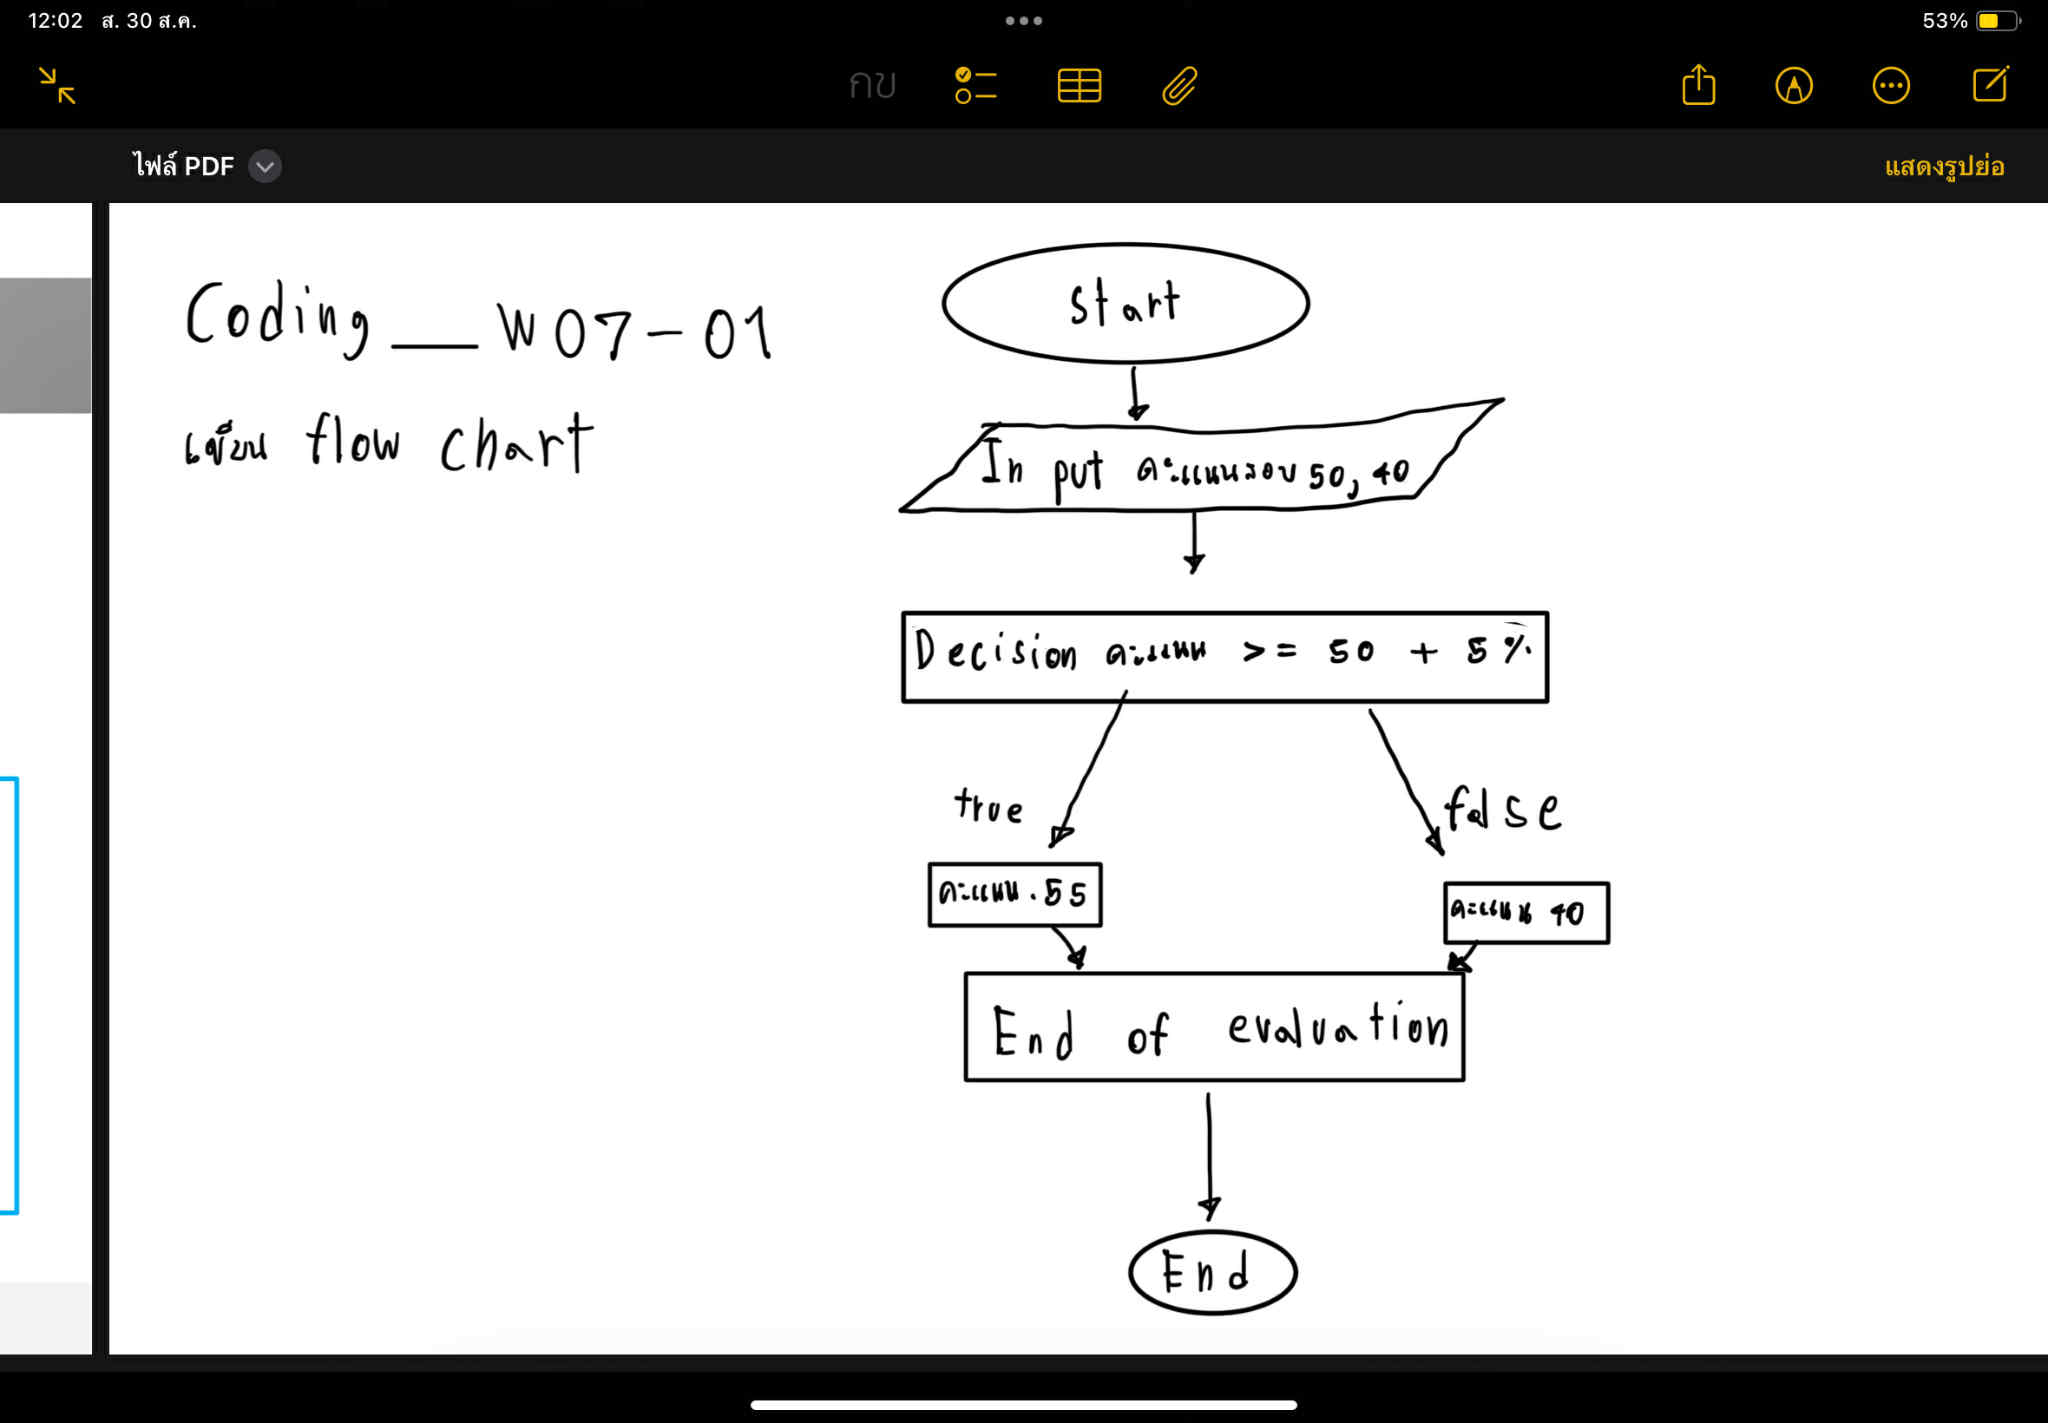 12:02 ส. 30 ส.ค.
53%
กข
ไฟล์ PDF
แสดงรูปย่อ
Coding __ W07-01
เขียน flow chart
Start
In put คะแนนสอบ 50, 40
Decision คะแนน >= 50 + 5%
true
false
คะแนน . 55
คะแนน 40
End of evaluation
End